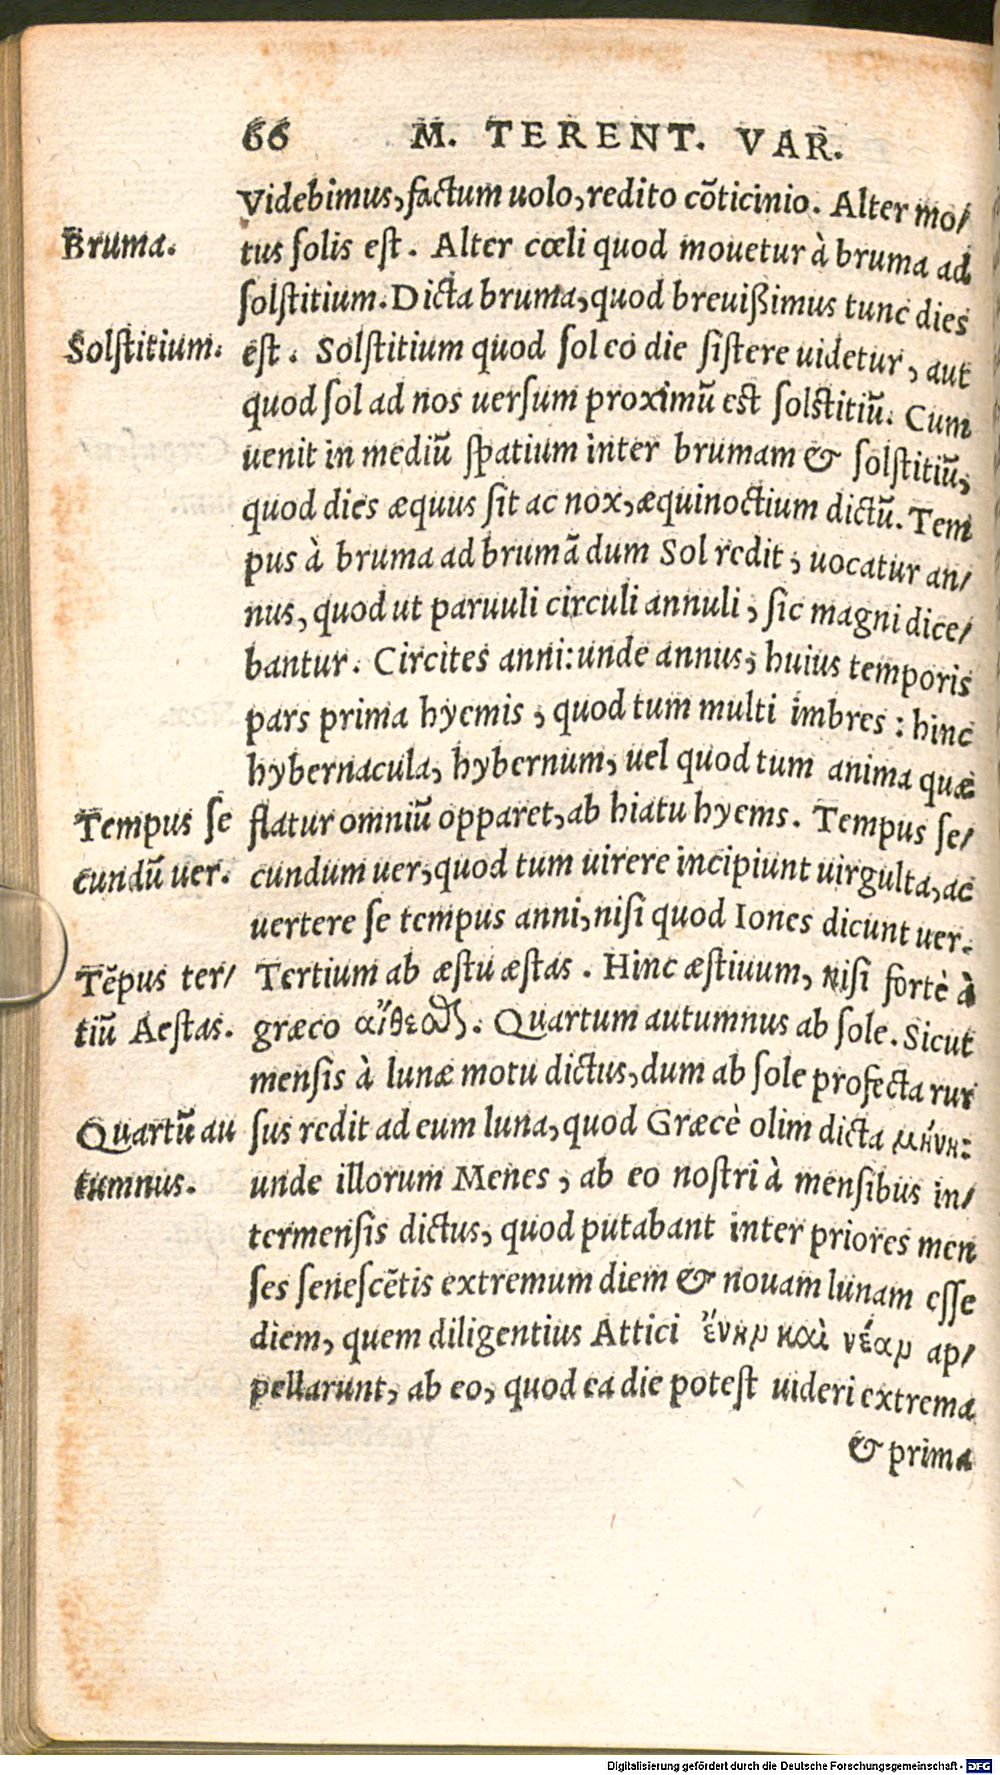 66 M. TERENT. VAR.
Videbimus, factum uolo, redito cõticinio. Alter mo/
Bruma.
tus solis est. Alter cœli quod mouetur à bruma ad
solstitium. Dicta bruma, quod breuißimus tunc dies
Solstitium.
est. Solstitium quod sol eo die sistere uidetur, aut
quod sol ad nos uersum proximũ est solstitiũ. Cum
uenit in mediũ spatium inter brumam & solstitiũ,
quod dies æquus sit ac nox, æquinoctium dictũ. Tem
pus à bruma ad brumã dum Sol redit, uocatur an/
nus, quod ut paruuli circuli annuli, sic magni dice/
bantur. Circites anni: unde annus, huius temporis
pars prima hyemis, quod tum multi imbres: hinc
hybernacula, hybernum, uel quod tum anima quæ
Tempus se
flatur omniũ opparet, ab hiatu hyems. Tempus se/
cundũ uer.
cundum uer, quod tum uirere incipiunt uirgulta, ac
uertere se tempus anni, nisi quod Iones dicunt uer.
Tẽpus ter/
Tertium ab æstu æstas. Hinc æstiuum, nisi fortè à
tiũ Aestas.
græco αἴθεσθ. Quartum autumnus ab sole. Sicut
mensis à lunæ motu dictus, dum ab sole profecta rur
Quartũ au
sus redit ad eum luna, quod Græcè olim dicta μήνη:
tumnus.
unde illorum Menes, ab eo nostri à mensibus in/
termensis dictus, quod putabant inter priores men
ses senescẽtis extremum diem & nouam lunam esse
diem, quem diligentius Attici ἔνην καὶ νέαν ap/
pellarunt, ab eo, quod ea die potest uideri extrema
& prima
Digitalisierung gefördert durch die Deutsche Forschungsgemeinschaft - DFG